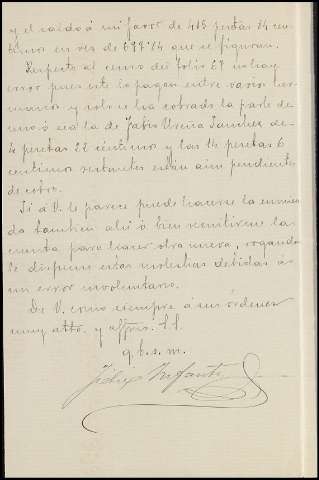 y el saldo á mi favor de 415 pesetas 14 cen-
timos en vez de 699'14 que se figuran.
Respecto al censo del folio 29 no hay
error pues este lo pagan entre varios her-
manos y solo se ha cobrado la parte de
uno ó sea la de Fabis Ureña Sanchez de
4 pesetas 22 céntimos y las 14 pesetas 6
centimos restantes están aún pendientes
de cobro.
Si á V. le parece puede hacerse la enmien-
da tambien allí ó bien remitirme la
cuenta para hacer otra nueva, rogando
le dispense estas molestias debidas á
un error involuntario.
De V. como siempre á sus órdenes
muy atto. y affmo. S. S.
q. b. s. m.
Infante